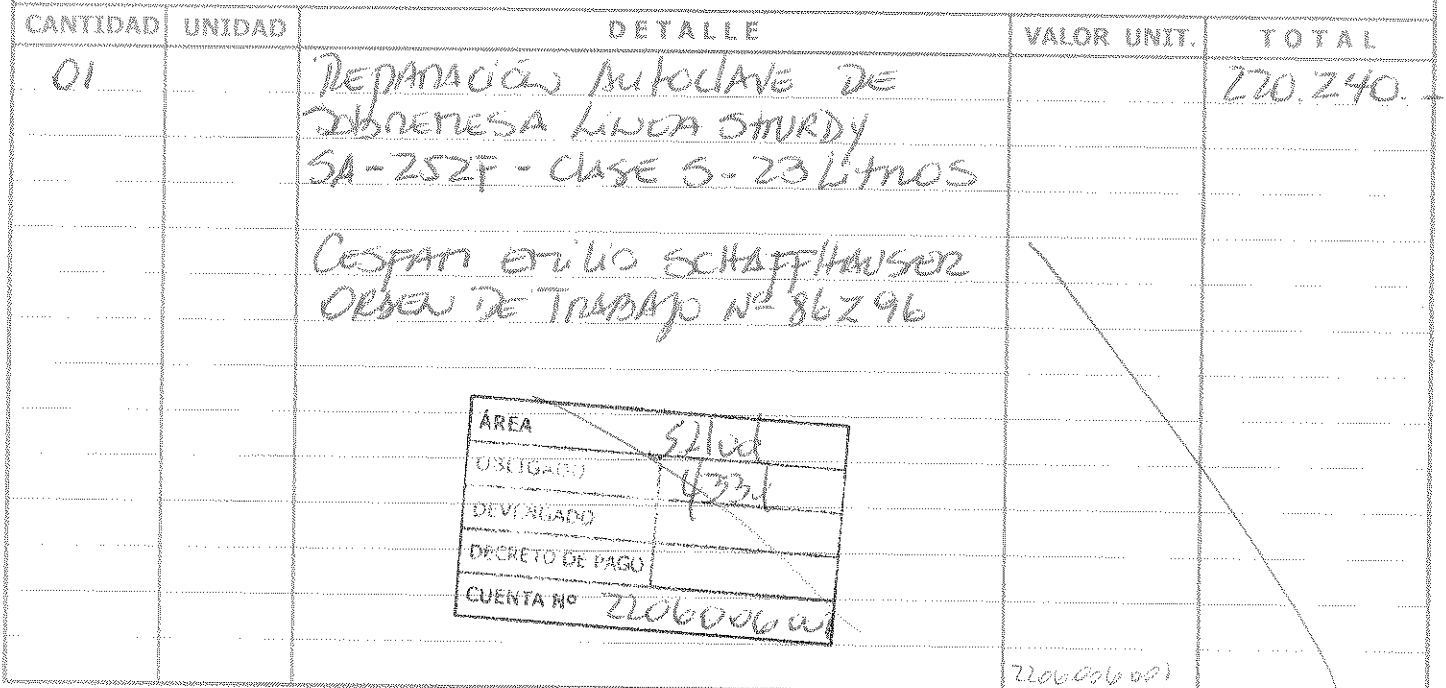 CANTIDAD UNIDAD DETALLE VALOR UNIT. TOTAL
01 REPARACIÓN AUTOCLAVE DE 220.240.-
SOBREMESA LINEA STURDY
SA-252F - CLASE S - 23 Litros
CESFAM EMILIO SCHAFFHAUSER
ORDEN DE TRABAJO Nº 86296
ÁREA Salud
OBLIGADO
DEVENGADO
DECRETO DE PAGO
CUENTA Nº 2206006001
2206006001